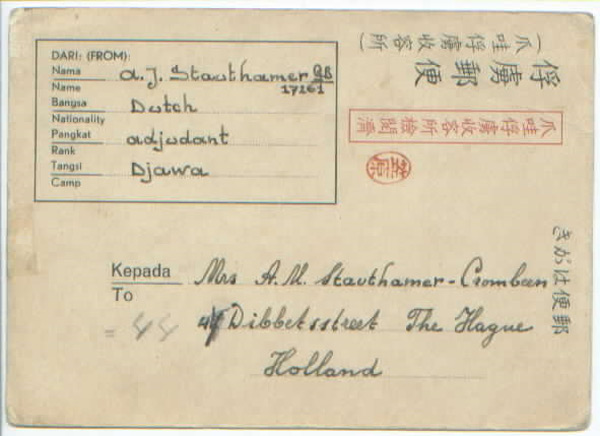 DARI: (FROM):
Nama
Name
A. J. Stavthamer
17261
Bangsa
Nationality
Dutch
Pangkat
Rank
adjudant
Tangsi
Camp
Djawa
(爪哇俘虜收容所)
俘虜郵便
爪哇俘虜收容所檢閱濟
郵便はがき
Kepada
To
Mrs A. M. Stavthamer-Crombeen
= 44
Dibbetsstreet The Hague
Holland